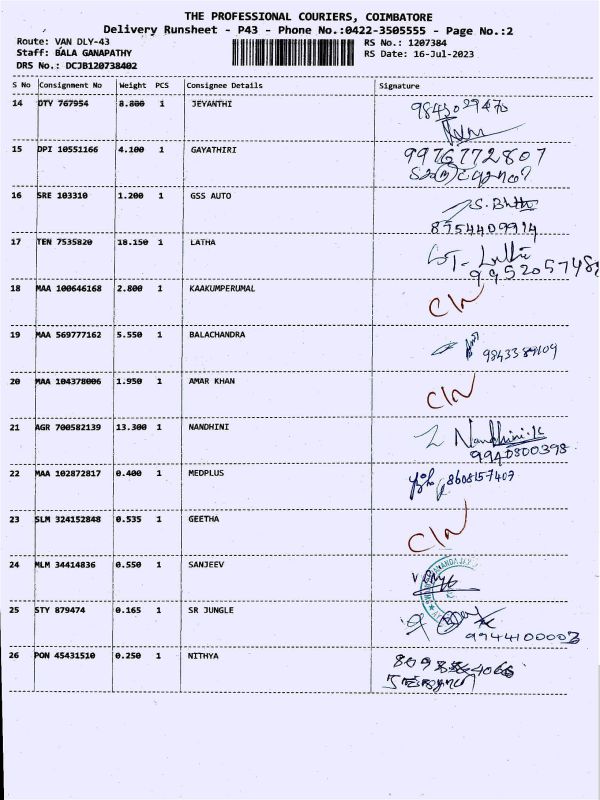 THE PROFESSIONAL COURIERS, COIMBATORE
Delivery Runsheet - P43 - Phone No.:0422-3505555 - Page No.:2
Route: VAN DLY-43 RS No.: 1207384
Staff: BALA GANAPATHY RS Date: 16-Jul-2023
DRS No.: DCJB120738402
S No Consignment No Weight PCS Consignee Details Signature
14 DTY 767954 8.800 1 JEYANTHI
15 DPI 10551166 4.100 1 GAYATHIRI 9976772807
16 SRE 103310 1.200 1 GSS AUTO
8754409914
17 TEN 7535820 18.150 1 LATHA
9952057482
18 MAA 100646168 2.800 1 KAAKUMPERUMAL
19 MAA 569777162 5.550 1 BALACHANDRA
20 MAA 104378006 1.950 1 AMAR KHAN
21 AGR 700582139 13.300 1 NANDHINI Nandhini.K
9940800398
22 MAA 102872817 0.400 1 MEDPLUS 8608157407
23 SLM 324152848 0.535 1 GEETHA
24 MLM 34414836 0.550 1 SANJEEV
25 STY 879474 0.165 1 SR JUNGLE
26 PON 45431510 0.250 1 NITHYA